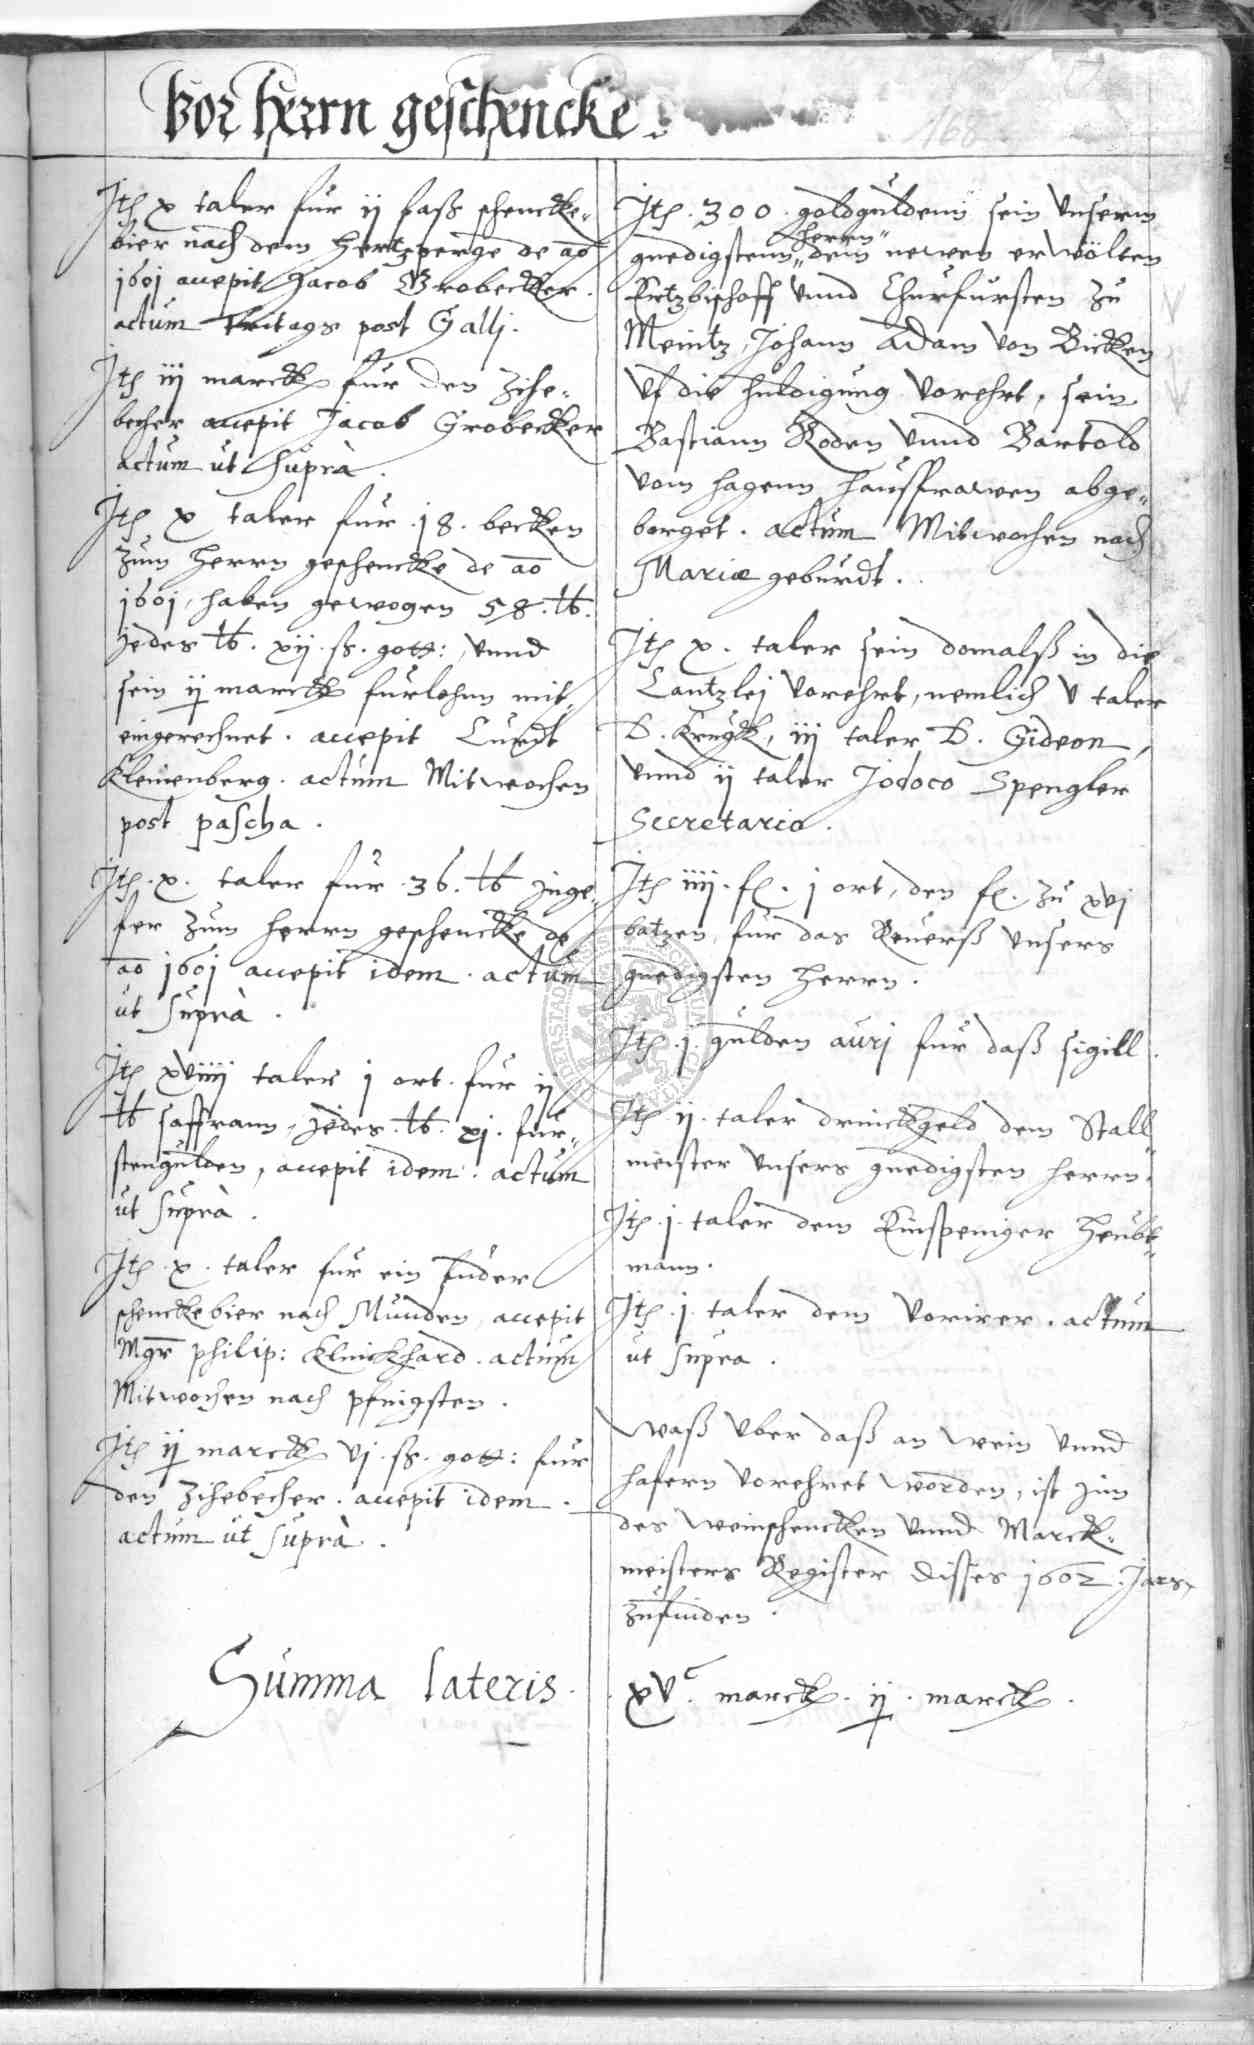 Vor herrn geschencke.
168
Itē x taler fur ij faß schencke„
bier nach dem Hertzperge de aō
1601 accepit Jacob Grobecker.
actum Fritags post Galli.
Itē iij marck fur den Zise„
becher accepit Jacob Grobecker
actum ut suprà.
Itē x taler fur .18. becken
zum herrn geschencke de aō
1601, haben gewogen 58. ℔.
jedes ℔. xij. ß. gott: vnnd
sein ij marck furlohnn mit„
eingerechnet. accepit Curdt
Kleinenberg. actum Mitwochen
post pascha.
Itē .x. taler fur .36. ℔ Inge„
fer zum herrn geschencke de
aō 1601 accepit idem. actum
ut suprà.
Itē xviiij taler j ort. fur ij
℔ saffrann, jedes. ℔. xj. fur„
stengulden, accepit idem. actum
ut suprà.
Itē .x. taler fur ein fuder
schenckebier nach Munden, accepit
Mgr philip: Klinckhard. actum
Mitwochen nach pfingsten.
Itē ij marck vj. ß. gott: fur
den Zisebecher. accepit idem.
actum ut suprà.
Itē .300. goldguldenn sein vnserm
gnedigstenn„ herrn„ dem newen erwölten
Ertzbischoff vnnd Churfursten zu
Meintz, Johann Adam von Bicken
vf die huldigung vorehrt, sein
Bastiann Roden vnnd Bartold
vom Hagenn haußfrawen abge„
borget. actum Mitwochen nach
Mariæ geburdt.
Itē x. taler sein domalß in die
Cantzlej vorehrt, nemlich v taler
D. Krugk, iij taler D. Gideon,
vnnd ij taler Jodoco Spengler
Secretario.
Itē iiij. fl. j ort, den fl. zu xvj
batzen, fur das Reuerß vnsers
gnedigsten herrn.
Itē .j. gulden auri fur daß sigill.
Itē .ij. taler drinckgeld dem Stall„
meister vnsers gnedigsten herrn.
Itē .j. taler dem Einspeniger Heubt„
mann.
Itē .j. taler dem Vorirer. actum
ut supra.
Waß vber daß an wein vnnd
hafern vorehret worden, ist Inn
des weinschencken vnnd Marck„
meisters Register disses 1602. Jars,
zufinden.
Summa lateris. xvᶜ. marck. ij. marck.